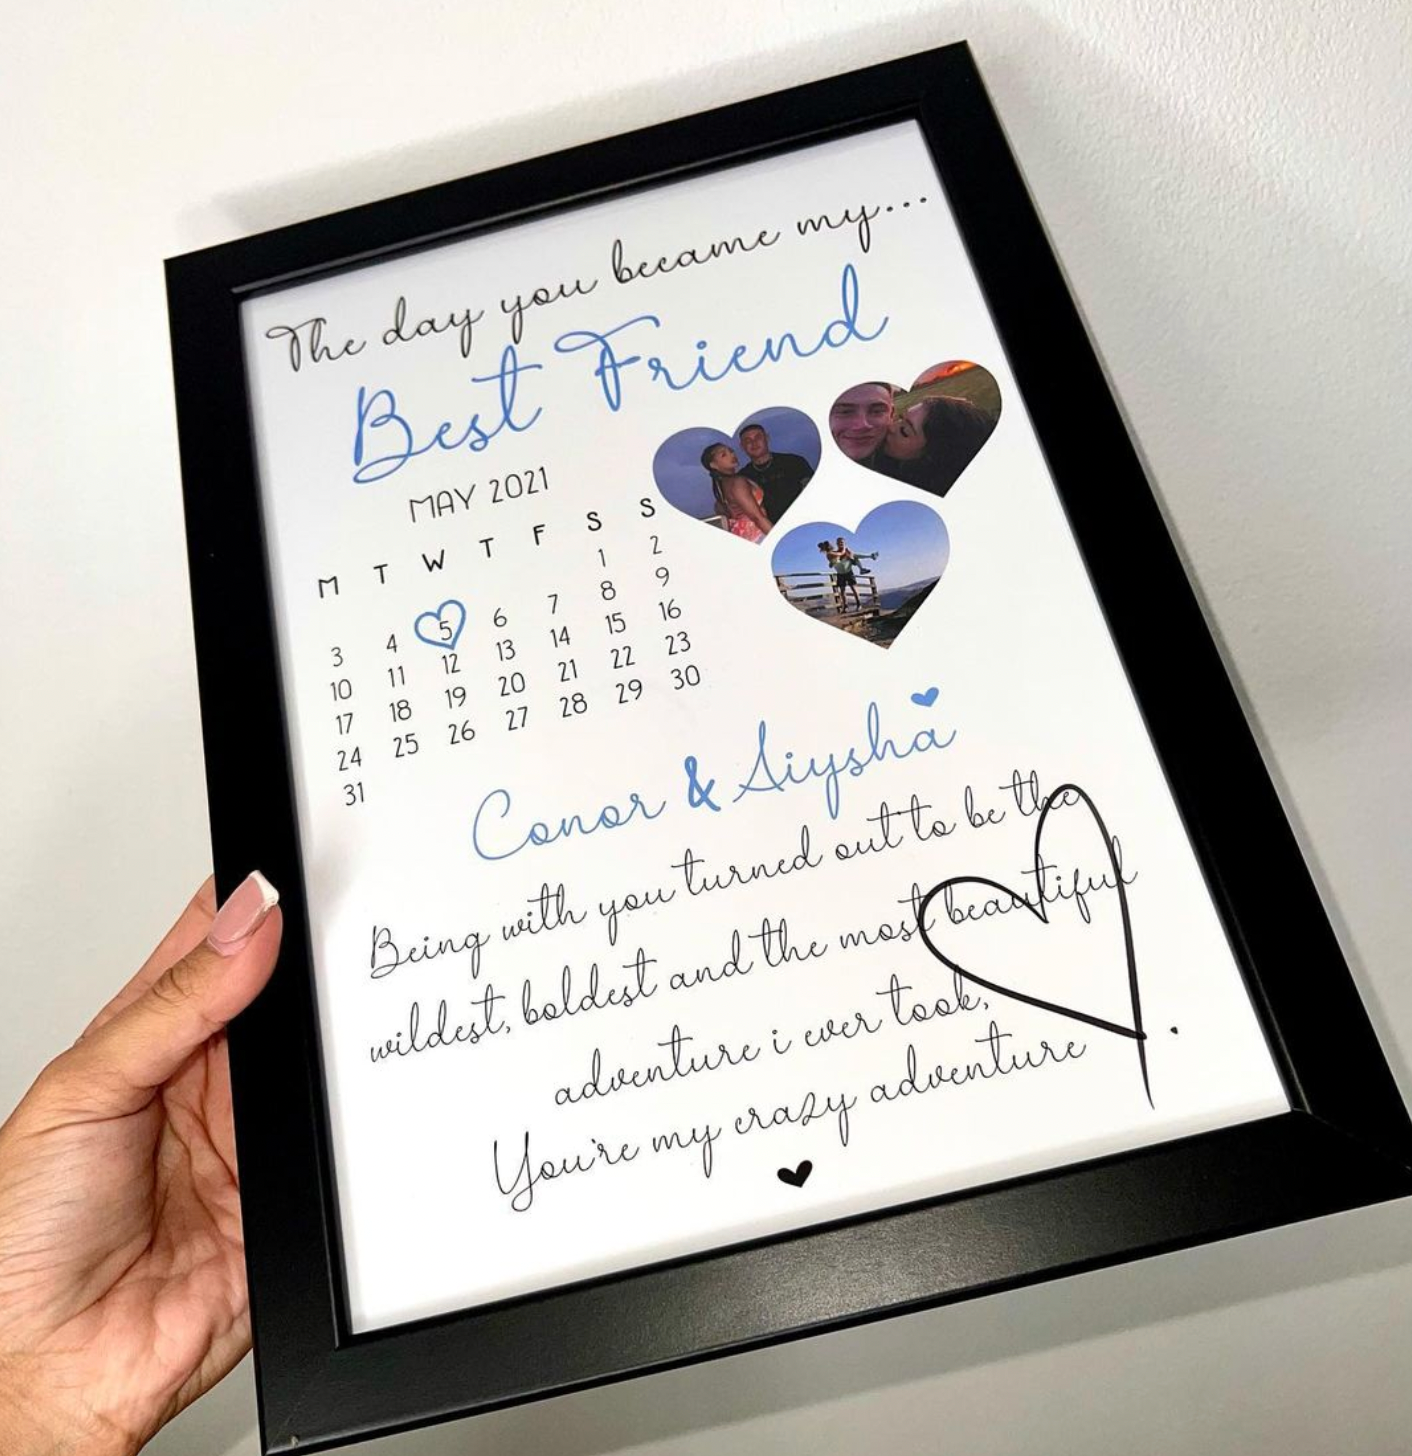 The day you became my...
Best Friend
MAY 2021
M T W T F S S
1 2
3 4 5 6 7 8 9
10 11 12 13 14 15 16
17 18 19 20 21 22 23
24 25 26 27 28 29 30
31
Conor & Aiysha
Being with you turned out to be the
wildest, boldest and the most beautiful
adventure i ever took,
You're my crazy adventure